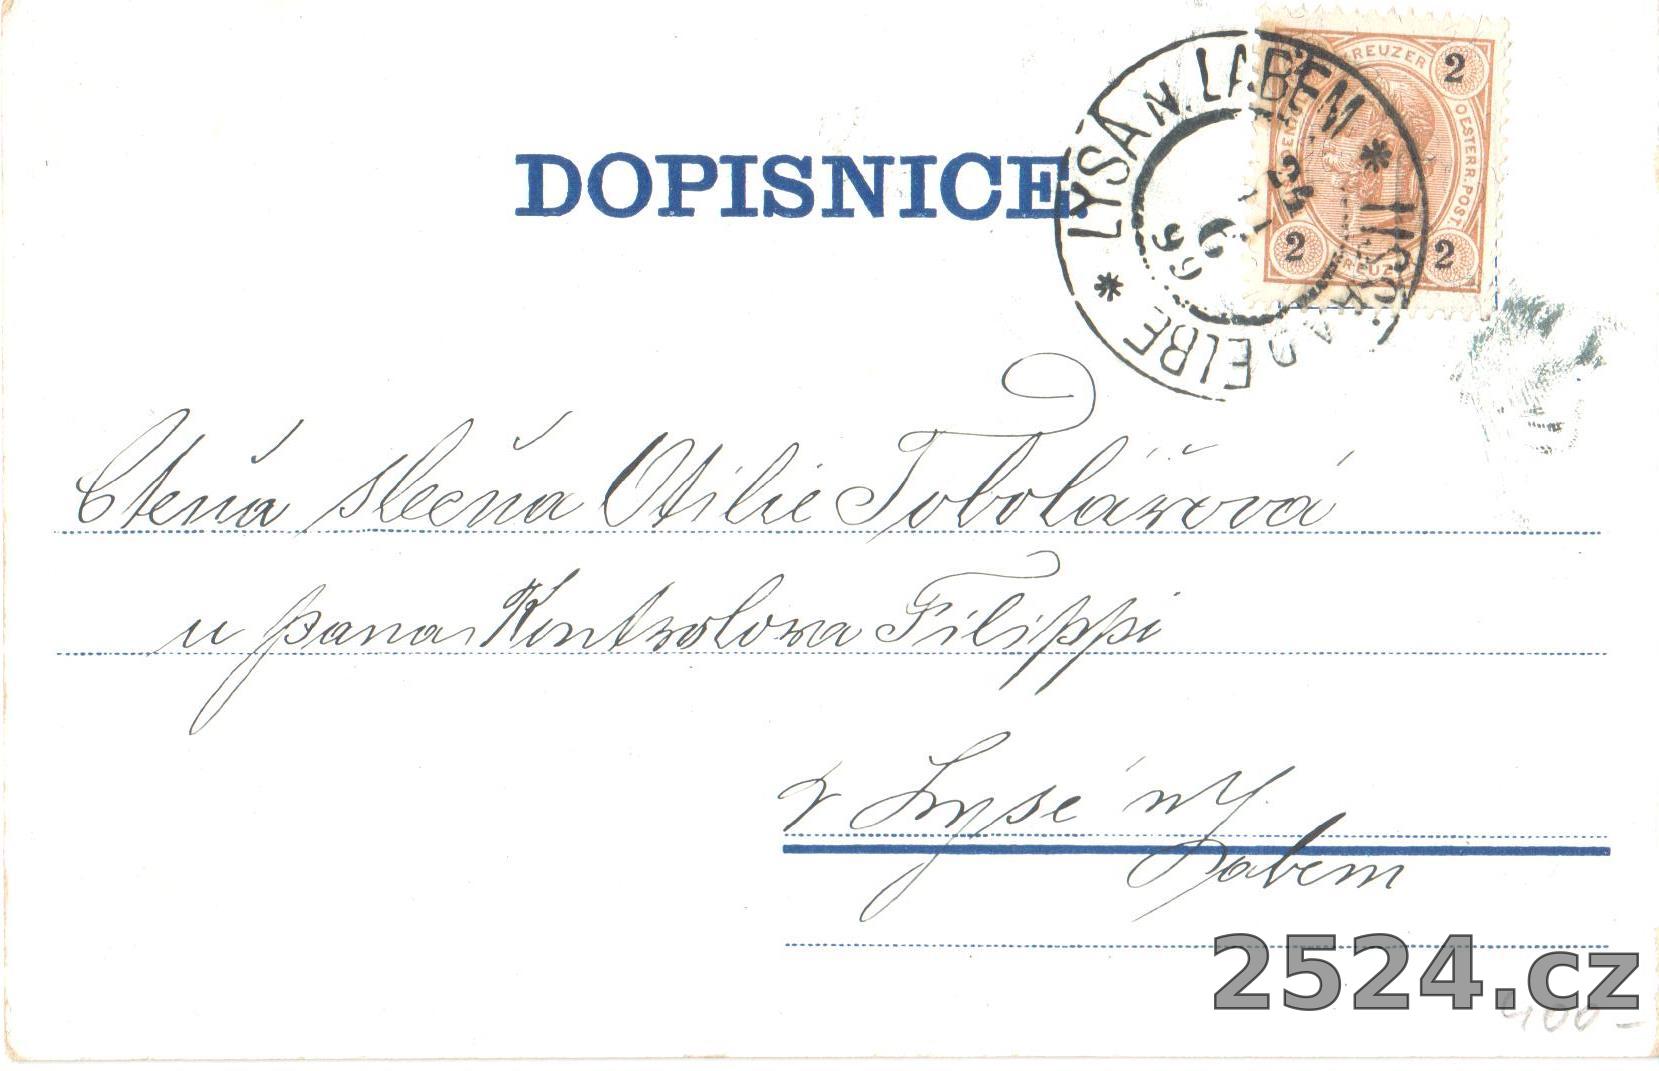 DOPISNICE.
LYSÁ N. LABEM * LISSA A. D. ELBE *
24
6
99
KREUZER
OESTERR. POST.
2
2 2
Ctená slečna Otilie Tobolářová
u pana Kontrolora Filippi
v Lysé n/
Labem
2524.cz
400-